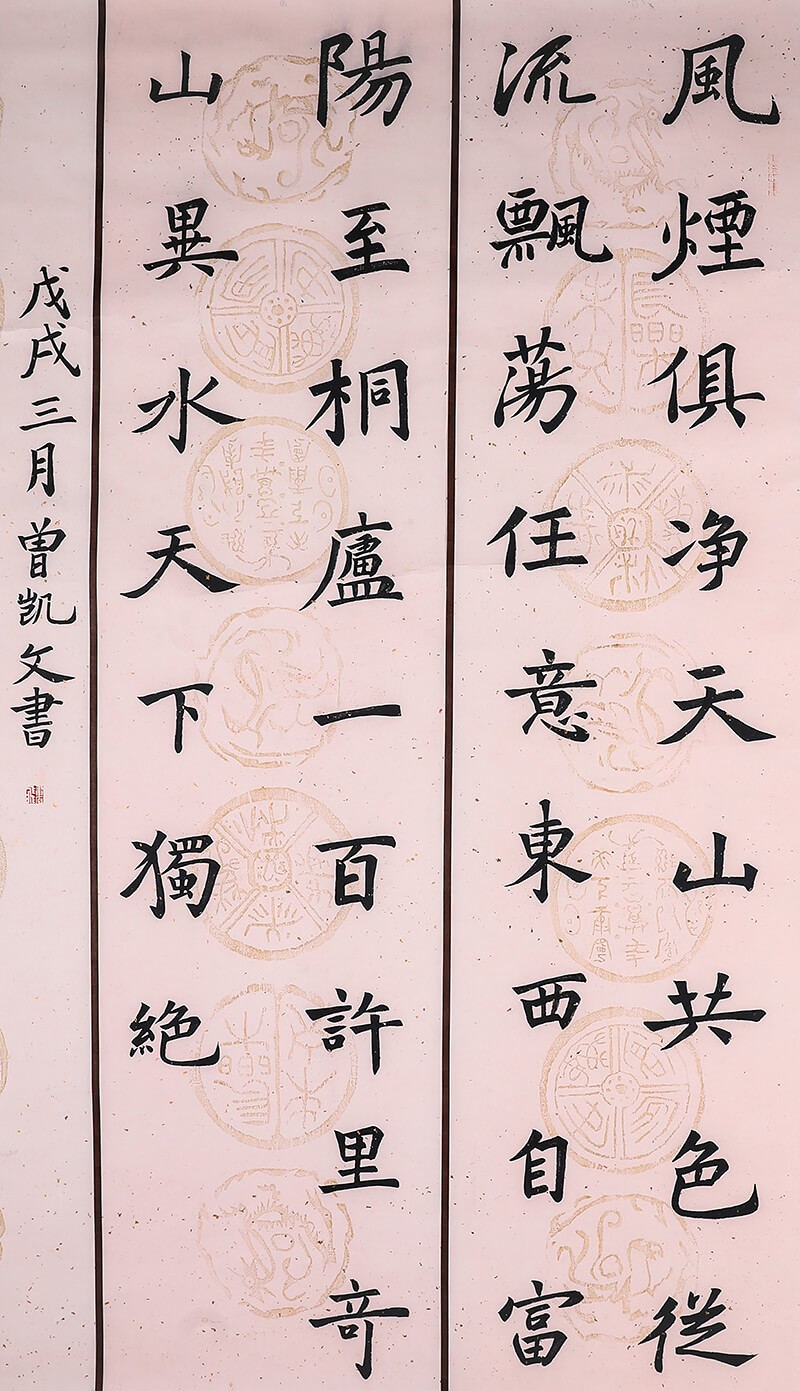 風煙俱净天山共色從
流飄蕩任意東西自富
陽至桐廬一百許里奇
山異水天下獨絕
戊戌三月曾凱文書